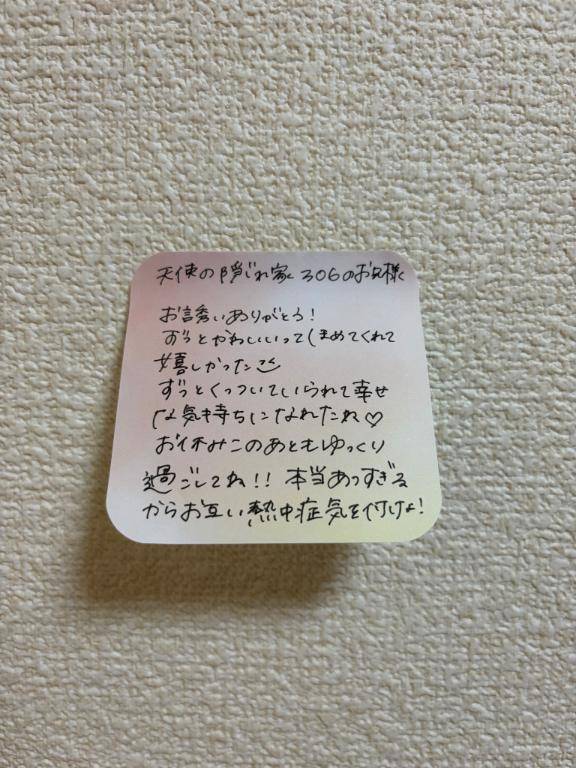 天使の隠れ家 306のお兄様
お誘いありがとう!
ずっとかわいいってほめてくれて
嬉しかった
ずっとくっついていられて幸せ
な気持ちになれたね♡
お休みこのあともゆっくり
過ごしてね!! 本当あつすぎる
からお互い熱中症気を付けよ!